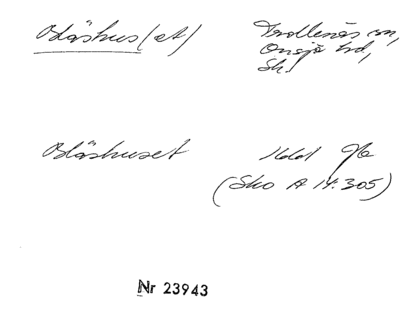 Blåshus (et) Trollenäs sn,
Onsjö hd,
Sk.
Blåshuset
(Sko A 14:305)
Nr 23943